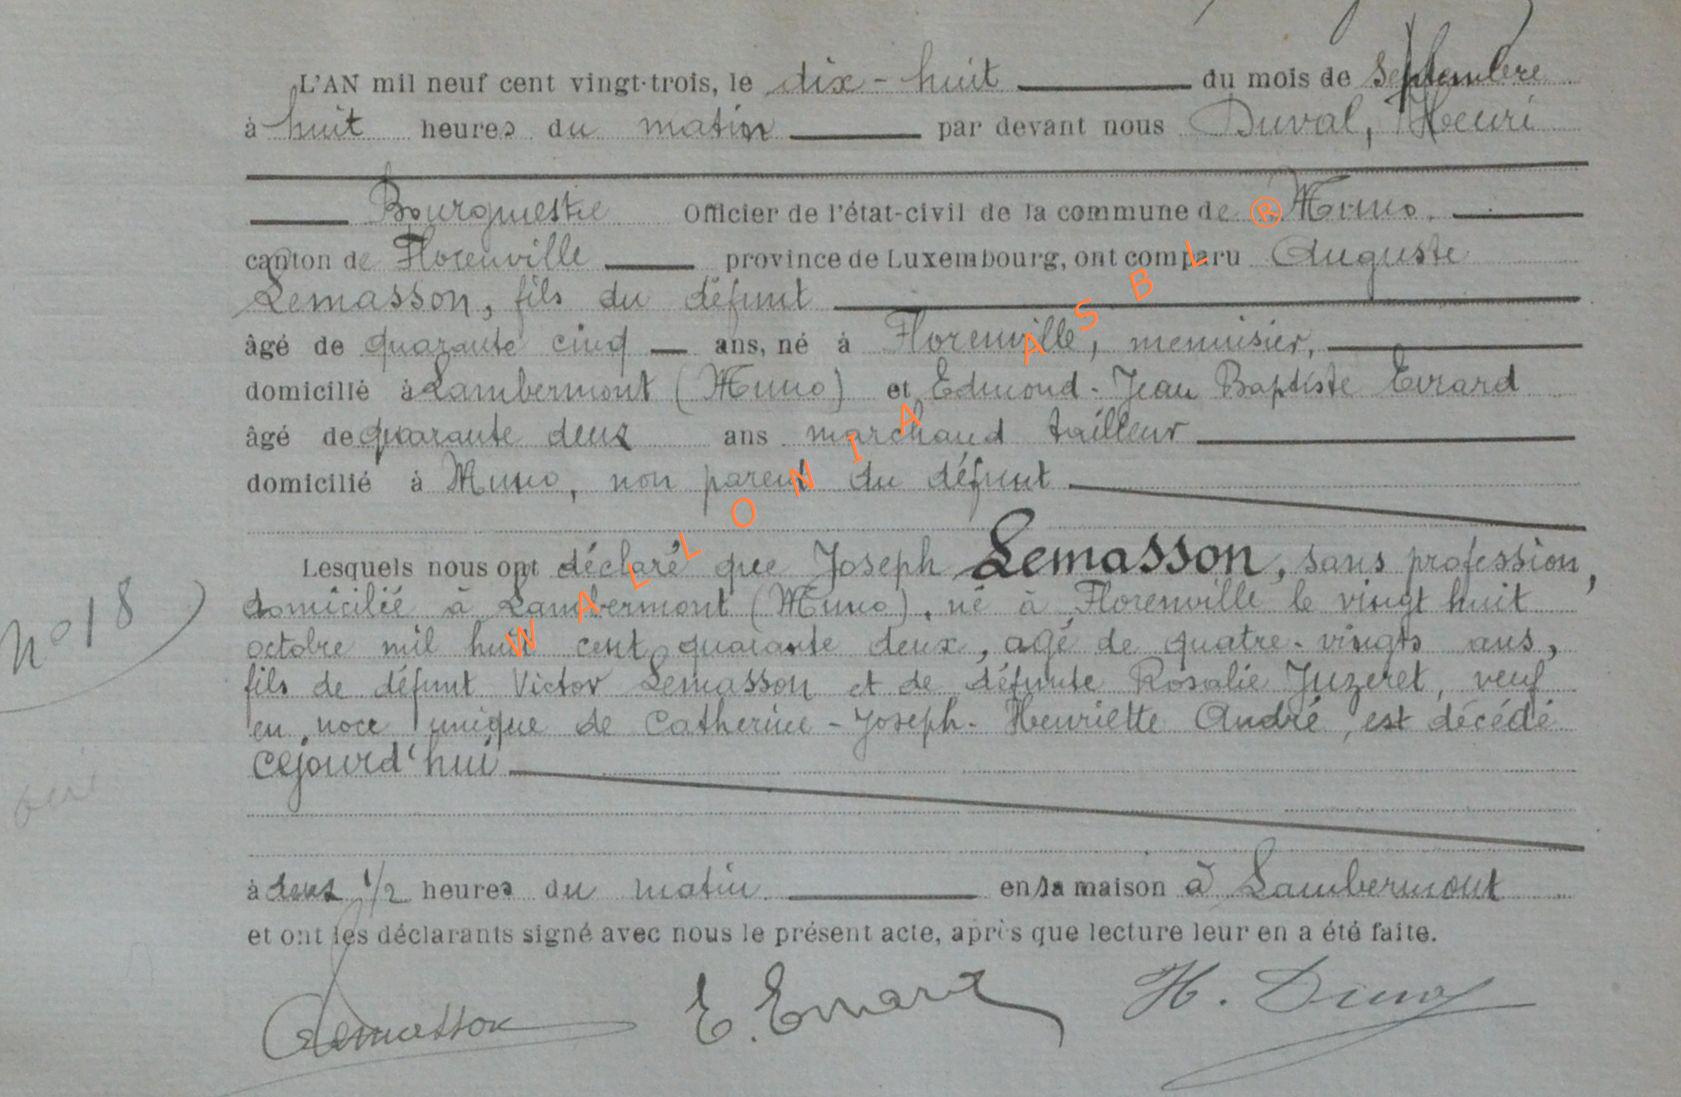 L'AN mil neuf cent vingt-trois, le dix-huit du mois de Septembre
à huit heures du matin par devant nous Duval, Henri
Bourgmestre Officier de l'état-civil de la commune de ® Muno.
canton de Florenville province de Luxembourg, ont comparu Auguste
Lemasson, fils du défunt
âgé de quarante cinq ans, né à Florenville, menuisier,
domicilié à Lambermont (Muno) et Edmond-Jean Baptiste Evrard
âgé de quarante deux ans marchand tailleur
domicilié à Muno, non parent du défunt
Lesquels nous ont déclaré que Joseph Lemasson, sans profession,
domicilié à Lambermont (Muno), né à Florenville le vingt huit
N° 18
octobre mil huit cent quarante deux, agé de quatre-vingts ans,
fils de défunt Victor Lemasson et de défunte Rosalie Juzeret, veuf
en noce unique de Catherine-Joseph-Henriette André, est décédé
cejourd'hui
à deux 1/2 heures du matin en sa maison à Lambermont
et ont les déclarants signé avec nous le présent acte, après que lecture leur en a été faite.
Lemasson E. Evrard H. Duval
WALLONIA ASBL